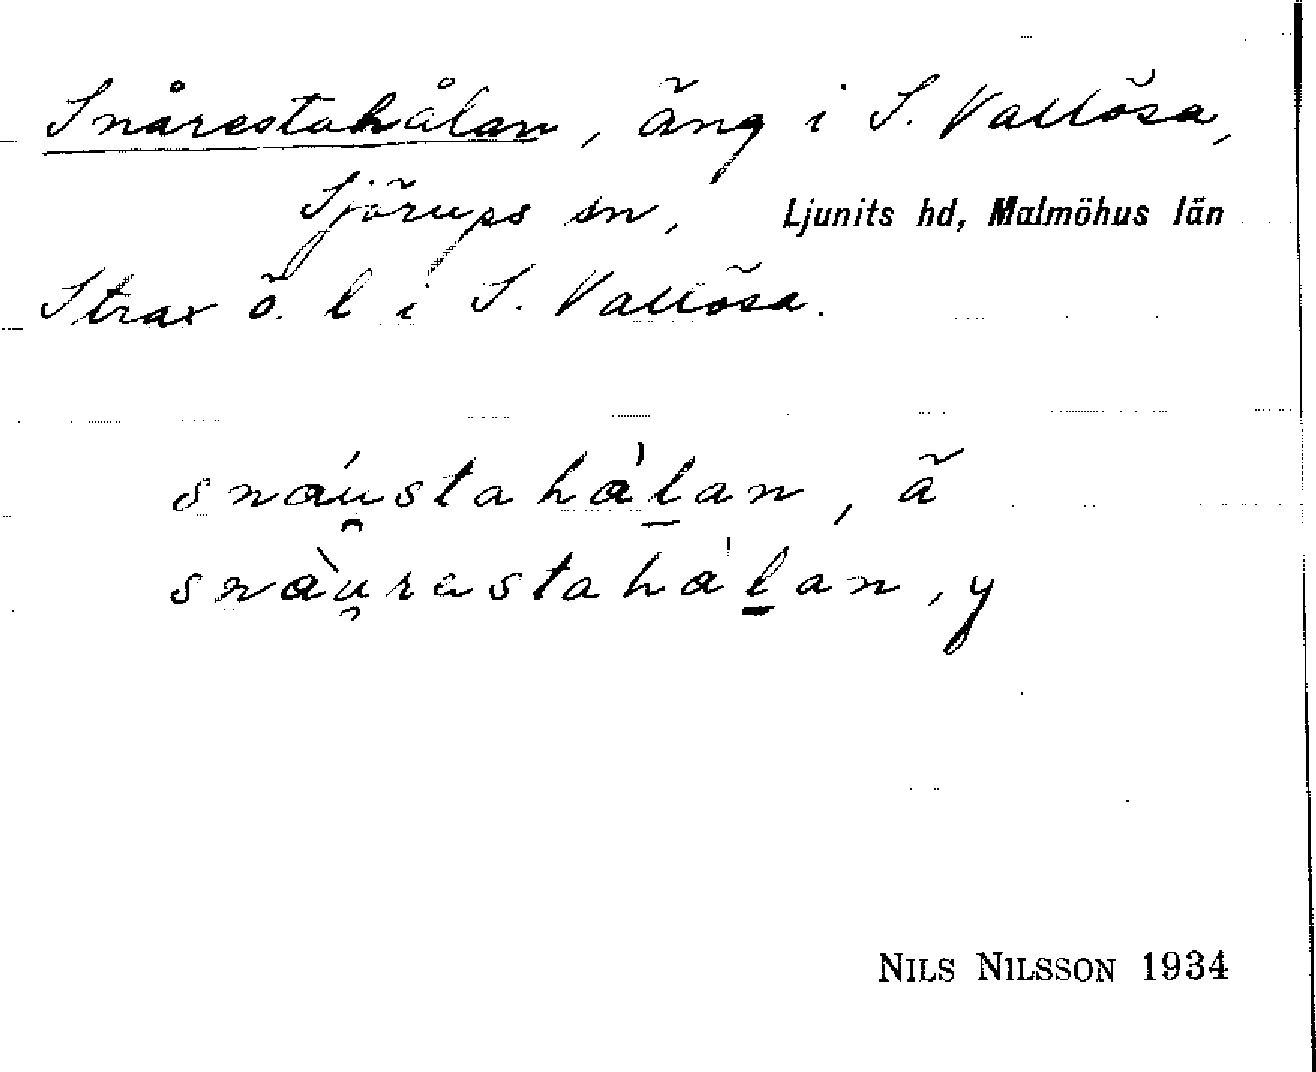 Snårestahålan, äng i S. Vallösa,
Sjörups sn, Ljunits hd, Malmöhus län
Strax ö. l i S. Vallösa.
snáu̯stahàḻan, ä
snàu̯restahàḻan, y
NILS NILSSON 1934